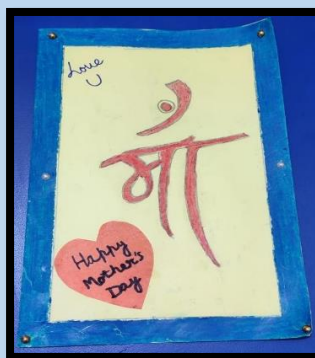 Love
U
माँ
Happy
Mother's
Day